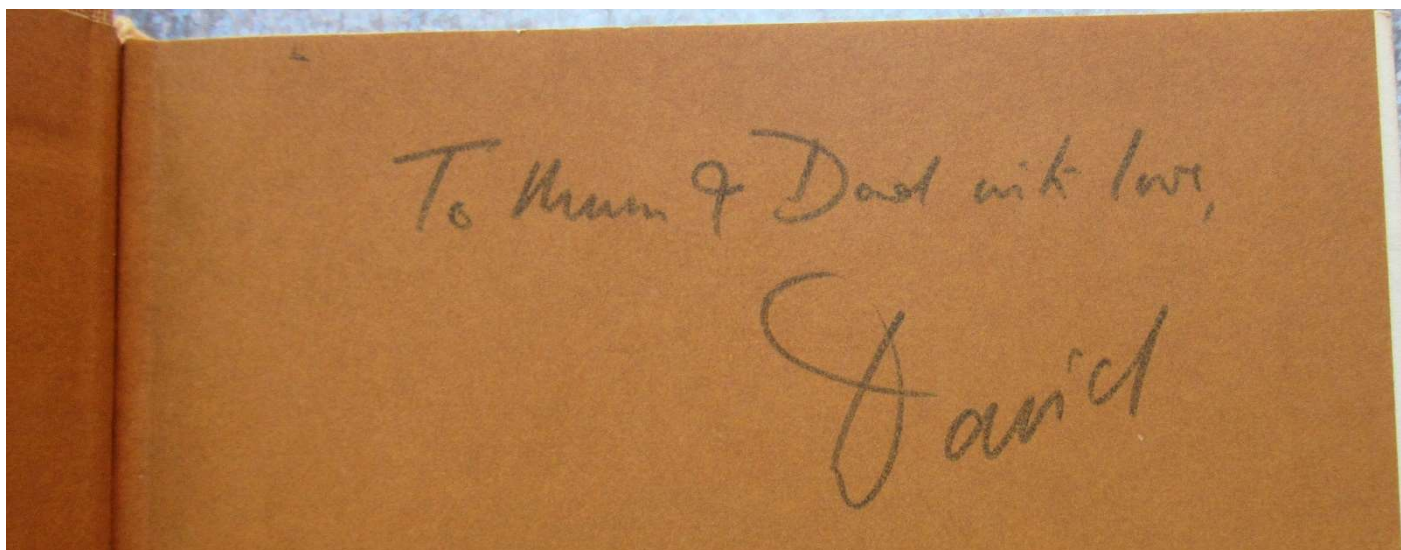 To Mum & Dad with love,
David